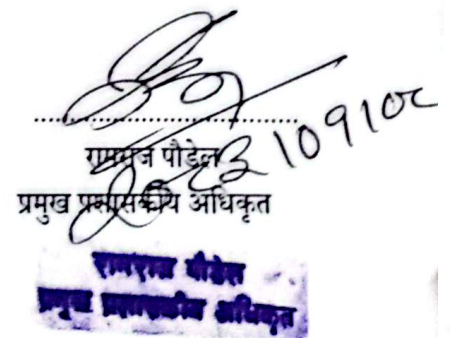 ..........................................
रामराज पौडेल
प्रमुख प्रशासकीय अधिकृत
रामराज पौडेल
प्रमुख प्रशासकीय अधिकृत